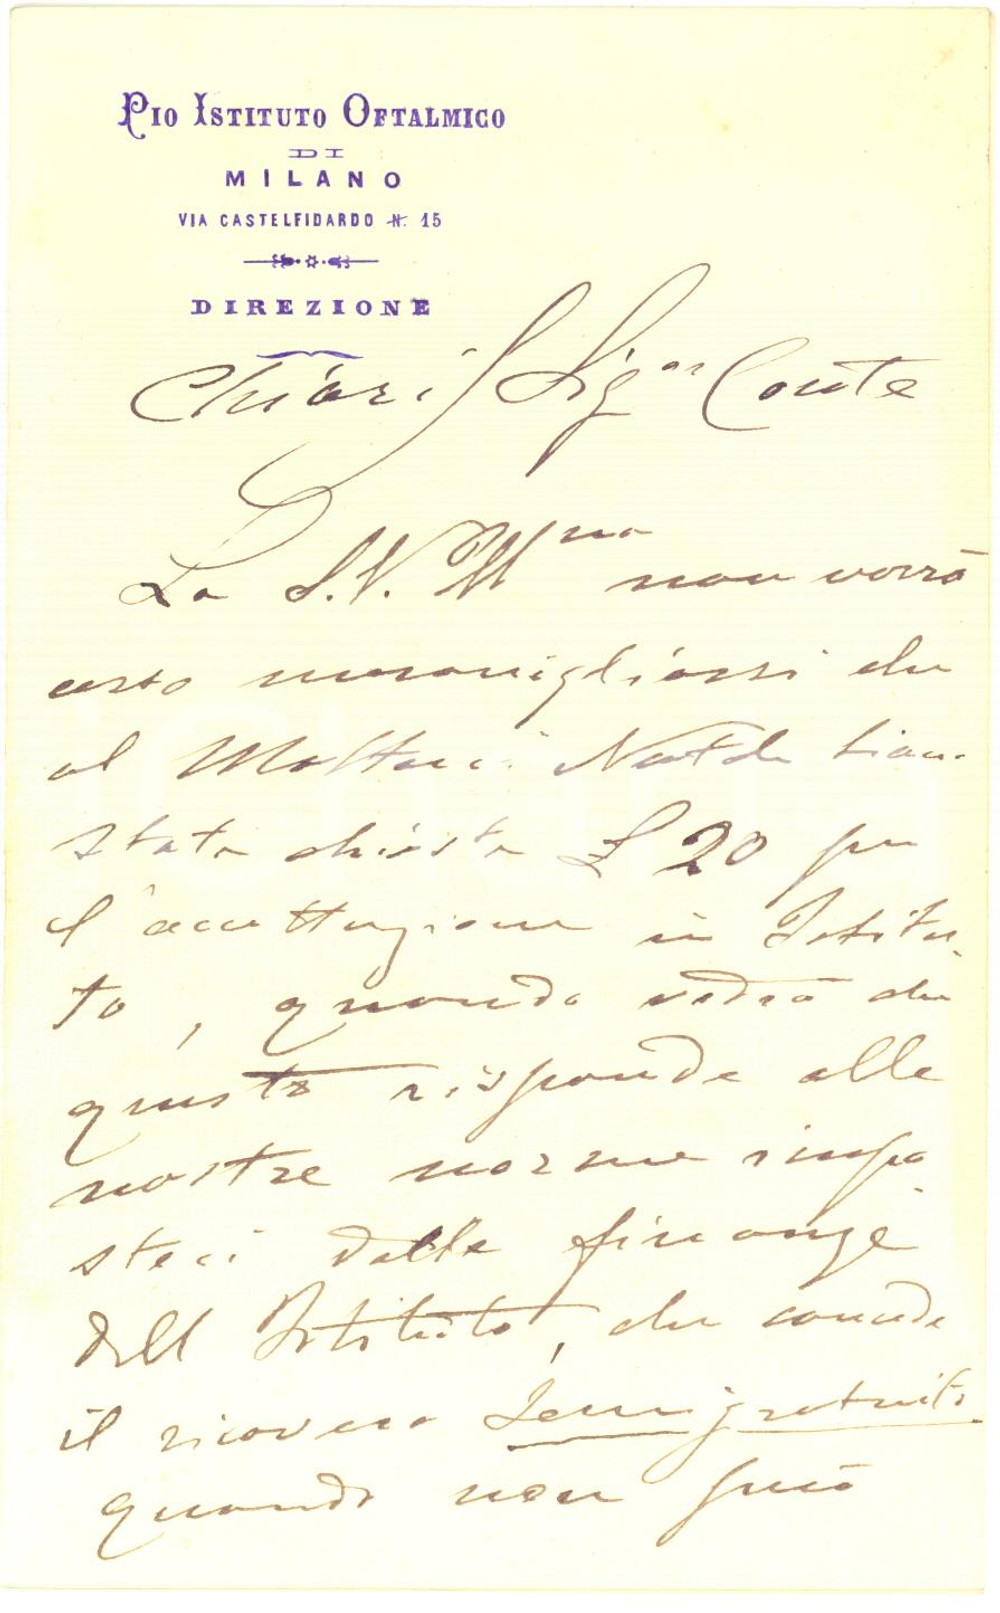 PIO ISTITUTO OFTALMICO
DI
MILANO
VIA CASTELFIDARDO N. 15
DIREZIONE
Chiar. Sigor Conte
La S. V. Illma non vorrà
certo meravigliarsi che
al Natale sian
state chieste £ 20 per
l'accettazione in Istitu-
to, quando vedrà che
questo risponde alle
nostre norme impo
steci dalle finanze
dell Istituto, che concede
il ricovero semigratuito
quando non può